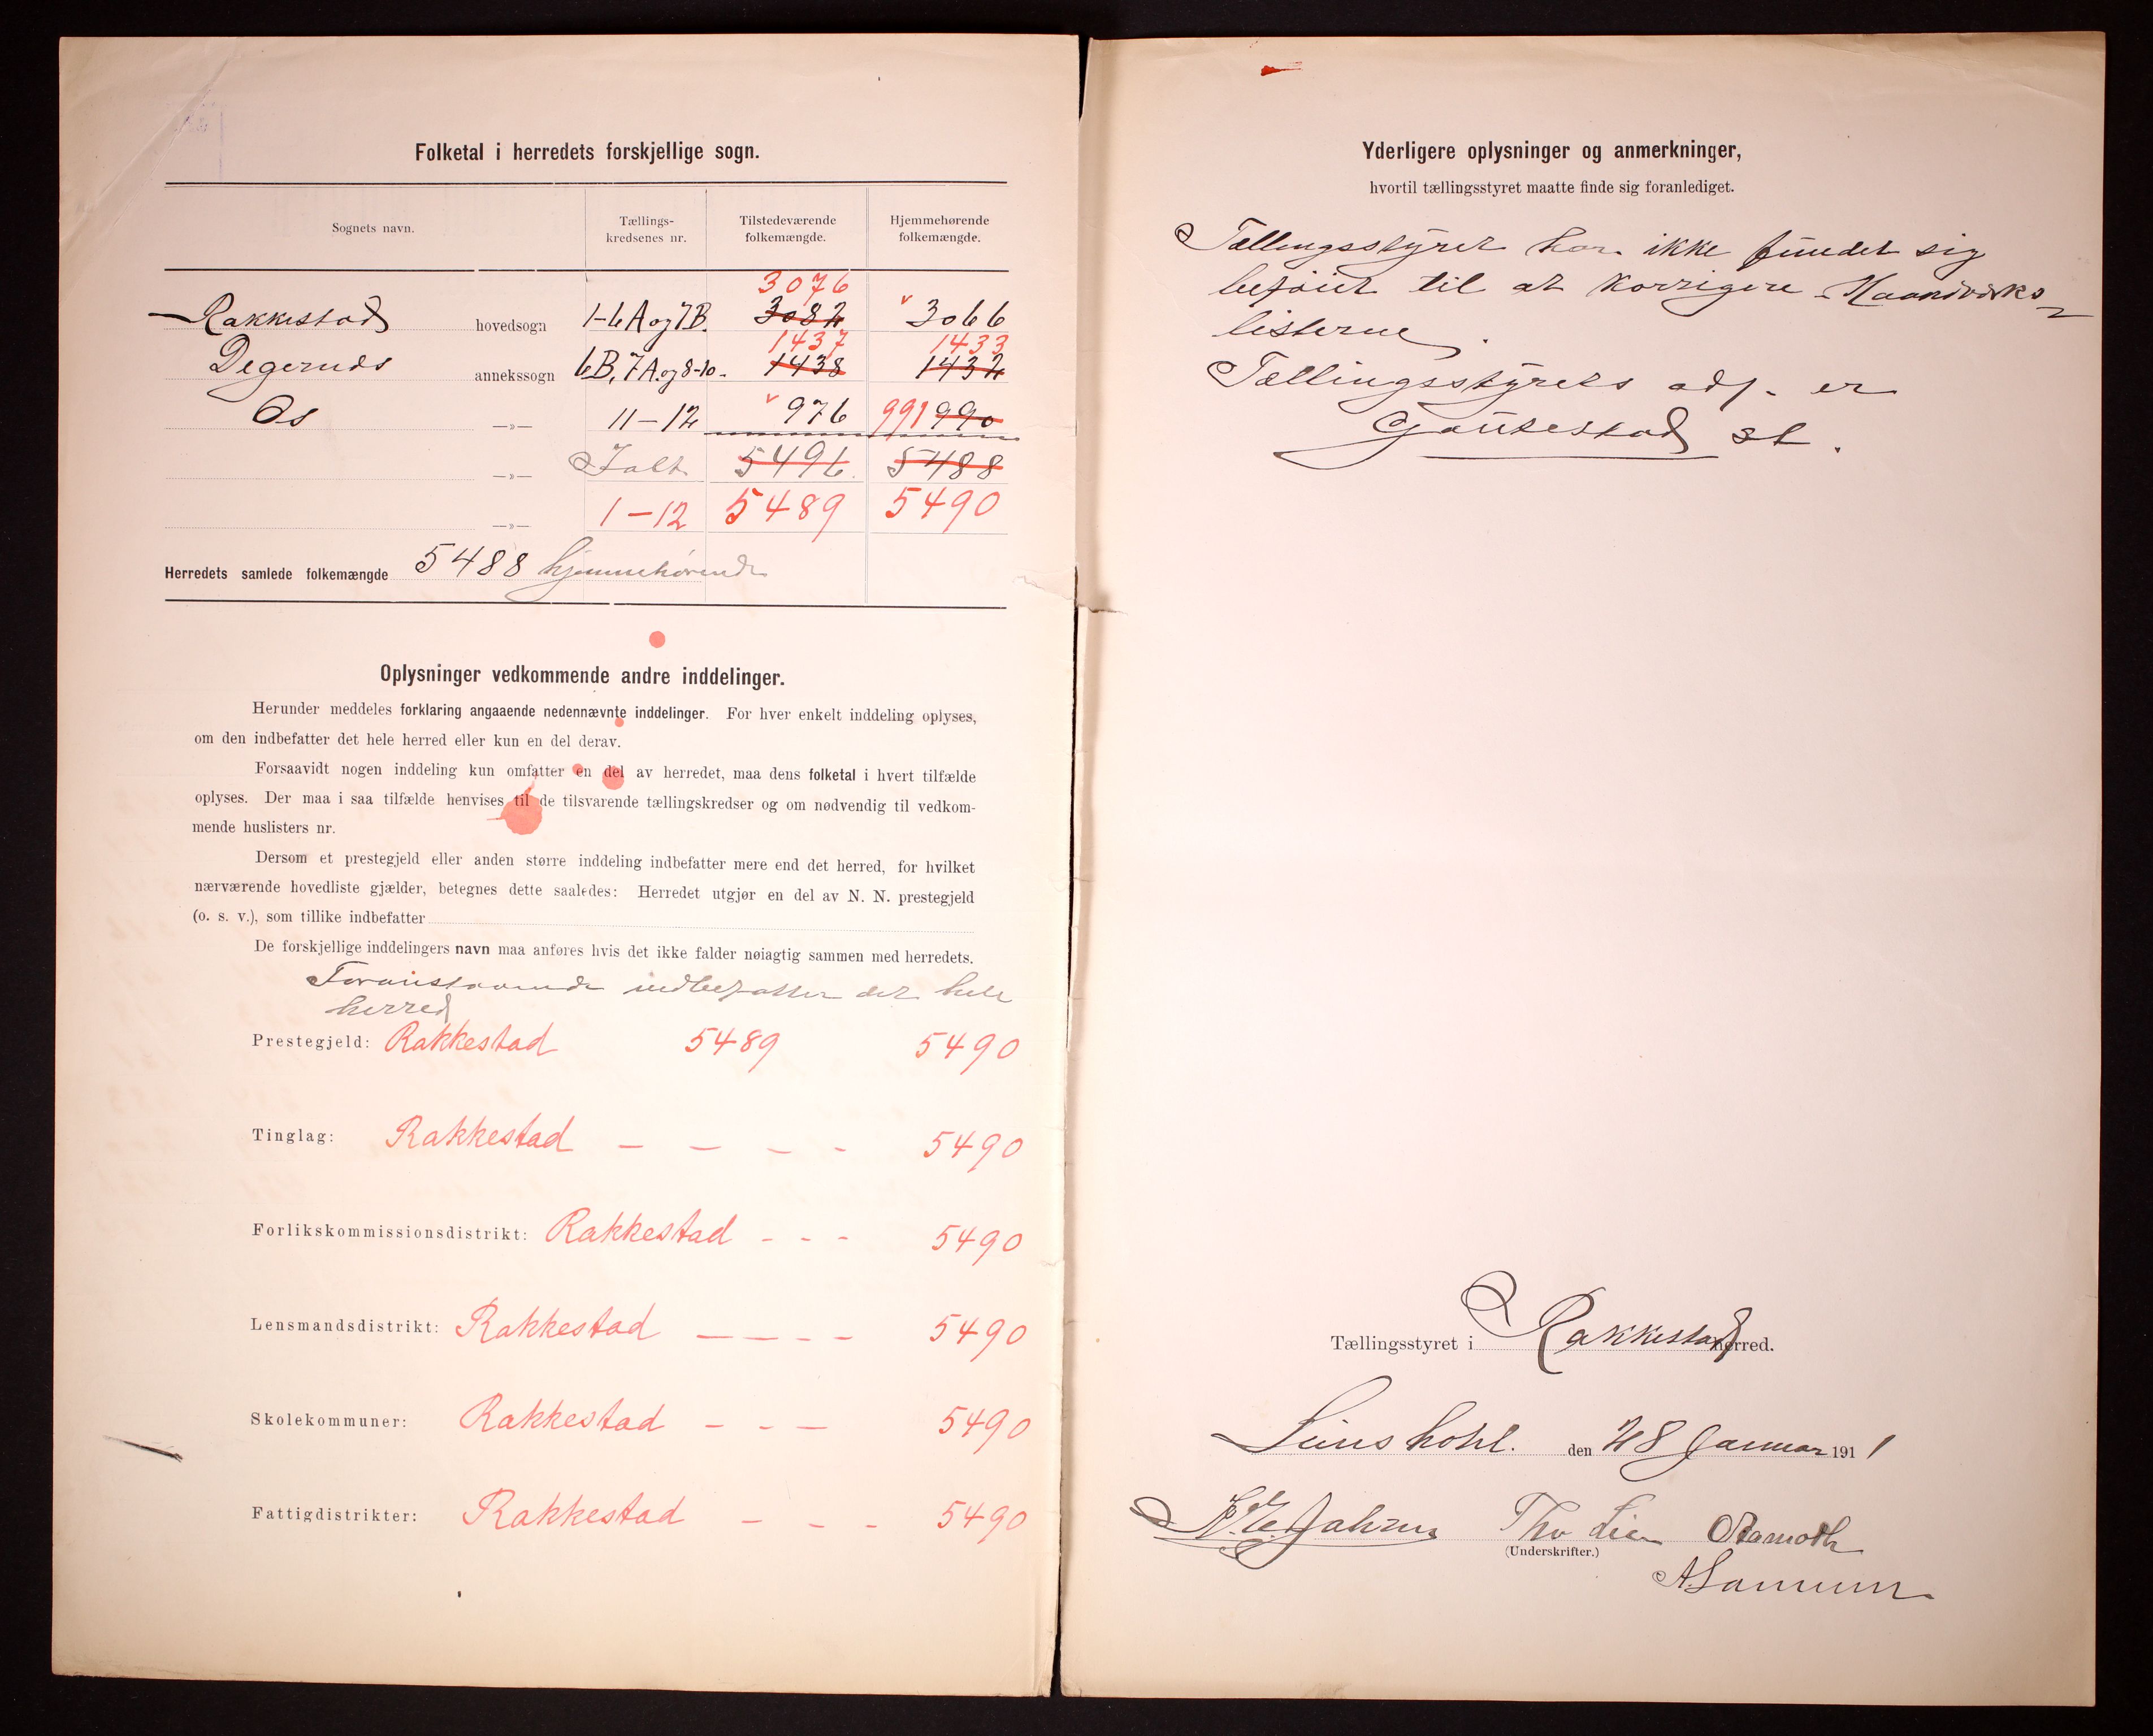 Folketal i herredets forskjellige sogn.
Sognets navn. Tællings-kredsenes nr. Tilstedeværende folkemængde. Hjemmehørende folkemængde.
3076
Rakkestad hovedsogn 1-6A og 7B. 3082 v 3066
1437 1433
Degernes annekssogn 6B, 7A. og 8-10. 1438 1432
Os —»— 11-12 v 976 991 990
—»— Ialt 5496. 5488
—»— 1-12 5489 5490
Herredets samlede folkemængde 5488 hjemmehørende
Oplysninger vedkommende andre inddelinger.
Herunder meddeles forklaring angaaende nedennævnte inddelinger. For hver enkelt inddeling oplyses,
om den indbefatter det hele herred eller kun en del derav.
Forsaavidt nogen inddeling kun omfatter en del av herredet, maa dens folketal i hvert tilfælde
oplyses. Der maa i saa tilfælde henvises til de tilsvarende tællingskredser og om nødvendig til vedkom-
mende huslisters nr.
Dersom et prestegjeld eller anden større inddeling indbefatter mere end det herred, for hvilket
nærværende hovedliste gjælder, betegnes dette saaledes: Herredet utgjør en del av N. N. prestegjeld
(o. s. v.), som tillike indbefatter
De forskjellige inddelingers navn maa anføres hvis det ikke falder nøiagtig sammen med herredets.
Foranstaaende indbefatter det hele
herred
Prestegjeld: Rakkestad 5489 5490
Tinglag: Rakkestad – – – – 5490
Forlikskommissionsdistrikt: Rakkestad - - - 5490
Lensmandsdistrikt: Rakkestad – – – – 5490
Skolekommuner: Rakkestad – – – 5490
Fattigdistrikter: Rakkestad – – – 5490
Yderligere oplysninger og anmerkninger,
hvortil tællingsstyret maatte finde sig foranlediget.
Tællingsstyret har ikke fundet sig
beføiet til at korrigere Haandverks-
listerne.
Tællingsstyrets adr. er
Gautestad st.
Tællingsstyret i Rakkestad herred.
den 28 Januar 1911
Tho Lie
(Underskrifter.)